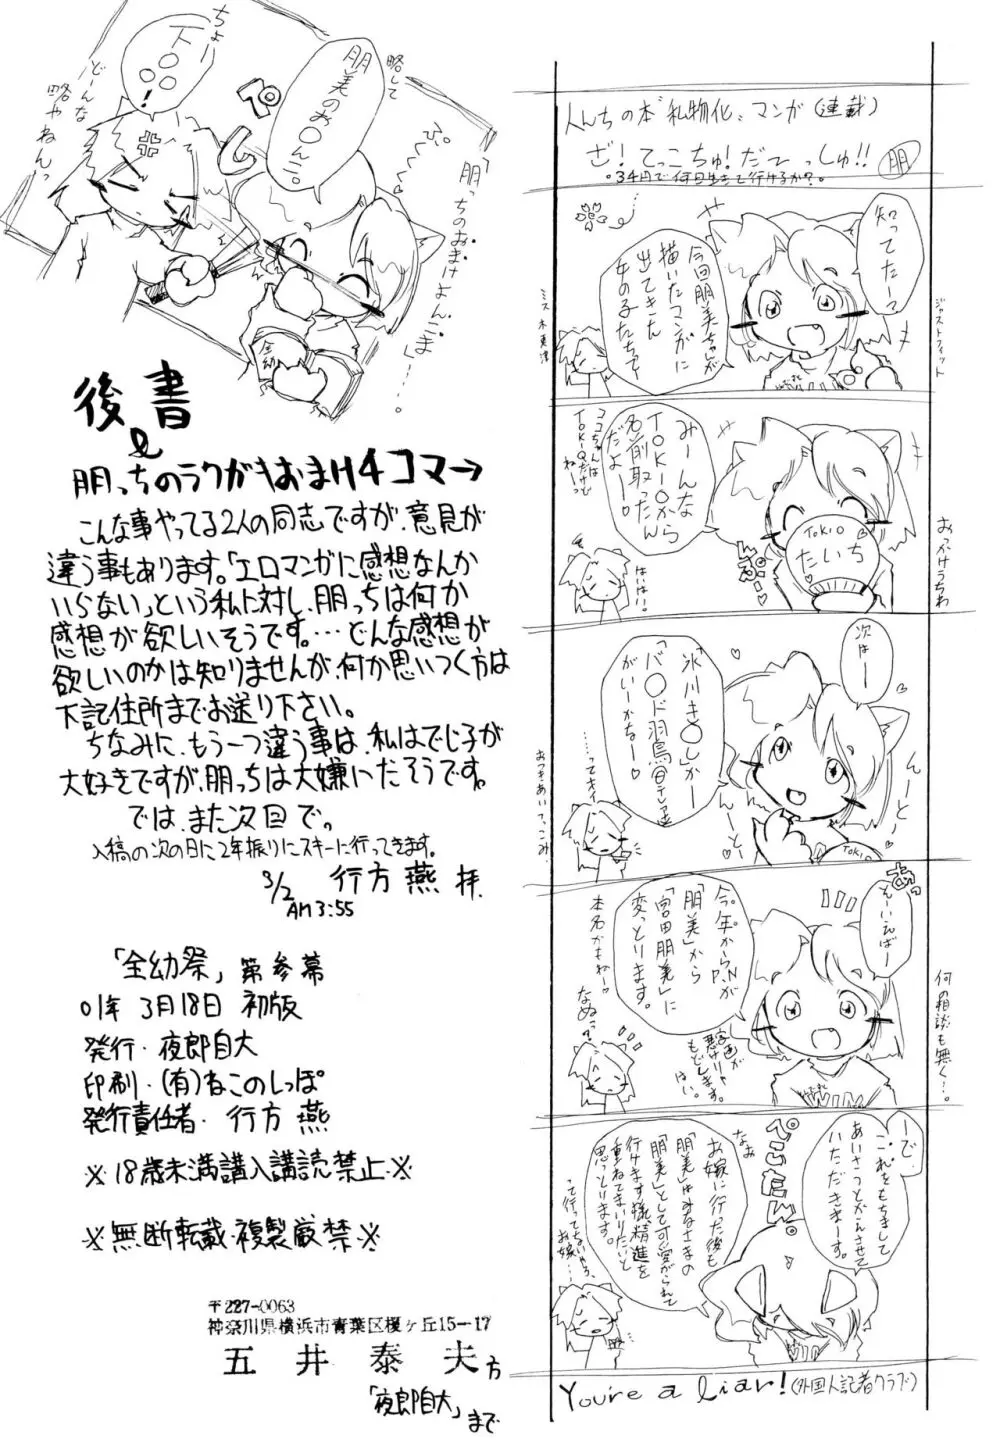 「朋っちのおまけよんこま」…。
略して
ぷくくく
朋美のお○んこ。
ちょー
下○○○!
どーんな
略やねんっ
後書
&
朋っちのラクガキおまけ4コマ→
こんな事やってる2人の同志ですが、意見が
違う事もあります。「エロマンガに感想なんか
いらない」という私に対し、朋っちは何か
感想が欲しいそうです。…どんな感想が
欲しいのかは知りませんが、何か思いつく方は
下記住所までお送り下さい。
ちなみに、もう一つ違う事は、私はでじ子が
大好きですが、朋っちは大嫌いだそうです。
では、また次回で。
入稿の次の日に2年振りにスキーに行ってきます。
3/2
AM 3:55
行方 燕 拝
「全幼祭」第参幕
01年 3月18日 初版
発行・夜郎自大
印刷・(有)ねこのしっぽ
発行責任者・行方 燕
※18歳未満購入購読禁止※
※無断転載・複製厳禁※
〒227-0063
神奈川県横浜市青葉区榎ヶ丘15-17
五井泰夫 方
「夜郎自大」まで
人んちの本"私物化"マンガ(連載)
ざ!てっこちゅ!だてっしゅ!! 朋
。34円で何日生きて行けるか?。
知ってたー?
今回朋美ちゃんが
描いたマンガに
出てきた
女の子たちって
ジャストフィット
ミス木更津
みーんな
TOKIOから
名前取ったん
だよー。
TOKIO
たいち
はいはい。
おっかけうちわ
次はー
「氷川き○し」か
「バ○ド羽鳥@テレ放送」
がいーかなー♡
んーとんーと
TOKIO
…ってオイ
おつきあいてっこみ
あっ
そーいえばー
今年からP.Nが
「朋美」から
「宮田朋美」に
変っとります。
字画が
悪けりゃ
もどします。
はい。
本名かもねー♡
なぬっ?
何の相談も無く…。
ーで
これをもちまして
あいさつとかえさせて
いただきまーす。
ぺこたん。
なお
お嫁に行った後も
「朋美」はみなさまの
「朋美」として可愛がられて
行けます様、精進を
重ねてまいりたいと
思っとります。
って行ってないやろ、
お嫁…
You're a liar! (外国人記者クラブ)